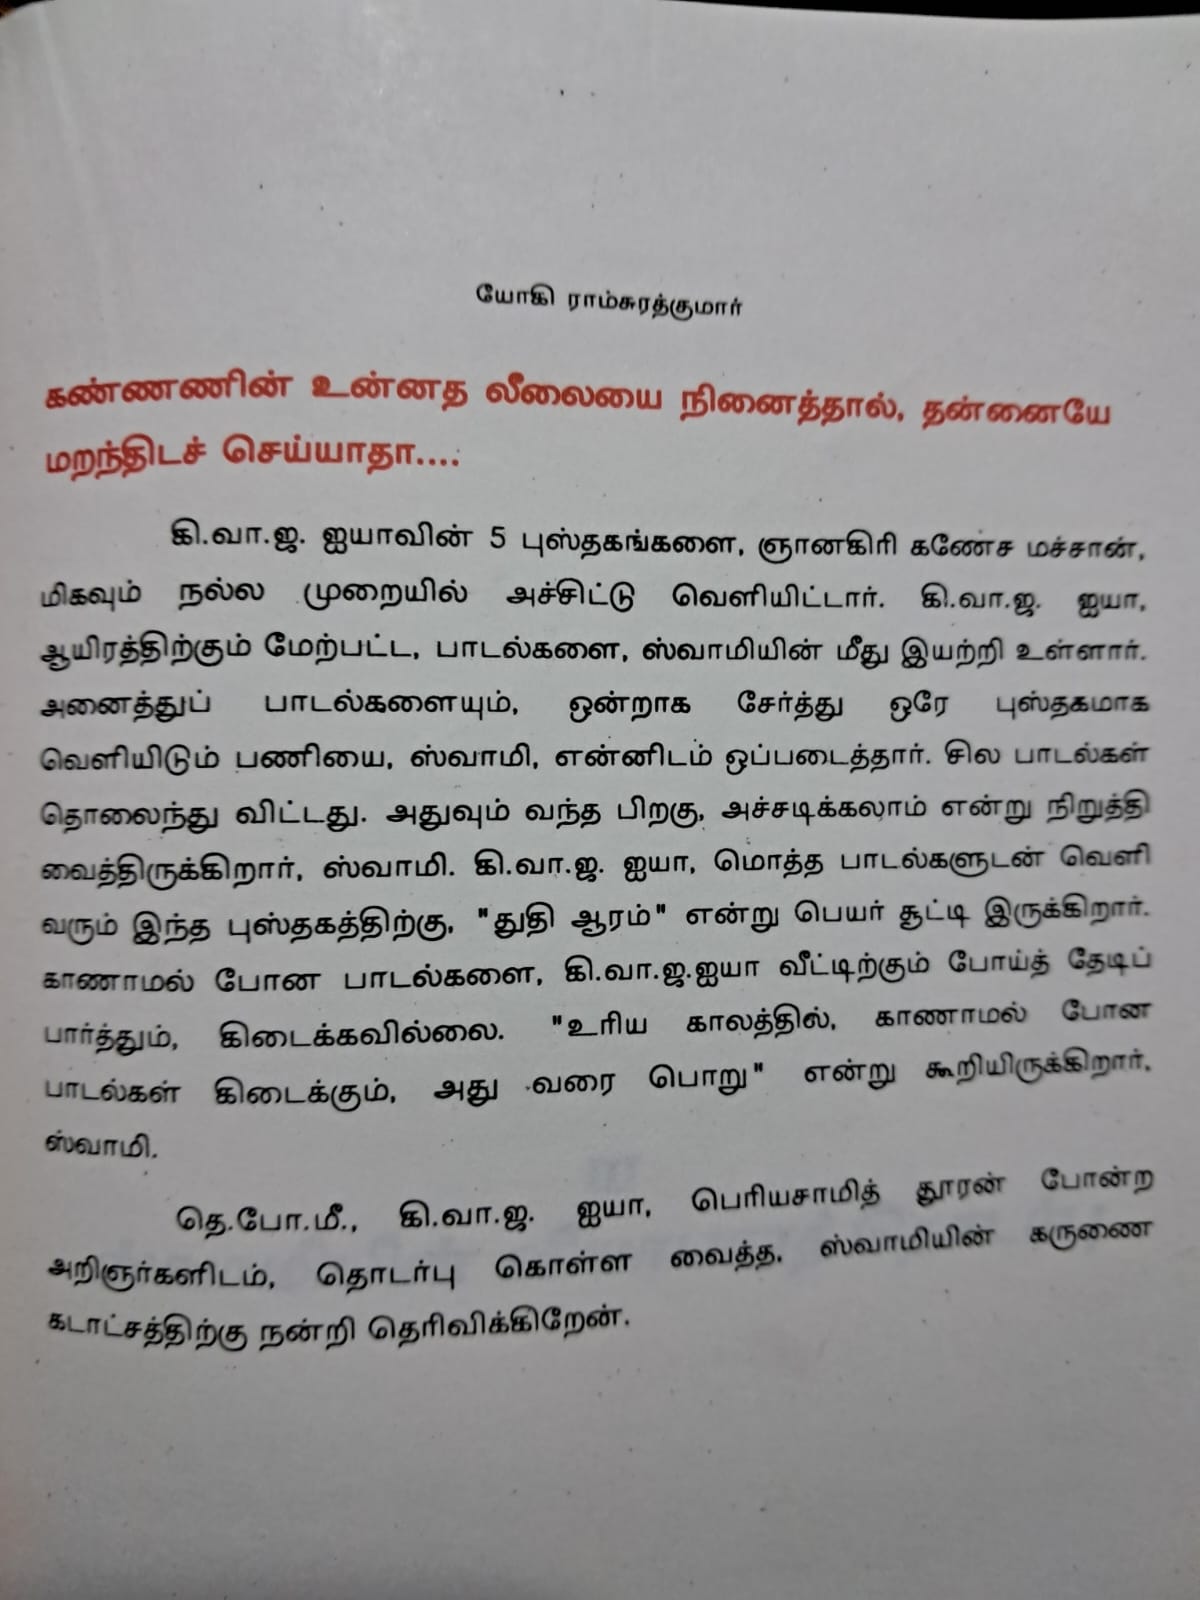 யோகி ராம்சுரத்குமார்
கண்ணணின் உன்னத லீலையை நினைத்தால், தன்னையே
மறந்திடச் செய்யாதா....
கி.வா.ஜ. ஐயாவின் 5 புஸ்தகங்களை, ஞானகிரி கணேச மச்சான்,
மிகவும் நல்ல முறையில் அச்சிட்டு வெளியிட்டார். கி.வா.ஜ. ஐயா,
ஆயிரத்திற்கும் மேற்பட்ட, பாடல்களை, ஸ்வாமியின் மீது இயற்றி உள்ளார்.
அனைத்துப் பாடல்களையும், ஒன்றாக சேர்த்து ஒரே புஸ்தகமாக
வெளியிடும் பணியை, ஸ்வாமி, என்னிடம் ஒப்படைத்தார். சில பாடல்கள்
தொலைந்து விட்டது. அதுவும் வந்த பிறகு, அச்சடிக்கலாம் என்று நிறுத்தி
வைத்திருக்கிறார், ஸ்வாமி. கி.வா.ஜ. ஐயா, மொத்த பாடல்களுடன் வெளி
வரும் இந்த புஸ்தகத்திற்கு, "துதி ஆரம்" என்று பெயர் சூட்டி இருக்கிறார்.
காணாமல் போன பாடல்களை, கி.வா.ஜ.ஐயா வீட்டிற்கும் போய்த் தேடிப்
பார்த்தும், கிடைக்கவில்லை. "உரிய காலத்தில், காணாமல் போன
பாடல்கள் கிடைக்கும், அது வரை பொறு" என்று கூறியிருக்கிறார்,
ஸ்வாமி.
தெ.போ.மீ., கி.வா.ஜ. ஐயா, பெரியசாமித் தூரன் போன்ற
அறிஞர்களிடம், தொடர்பு கொள்ள வைத்த, ஸ்வாமியின் கருணை
கடாட்சத்திற்கு நன்றி தெரிவிக்கிறேன்.